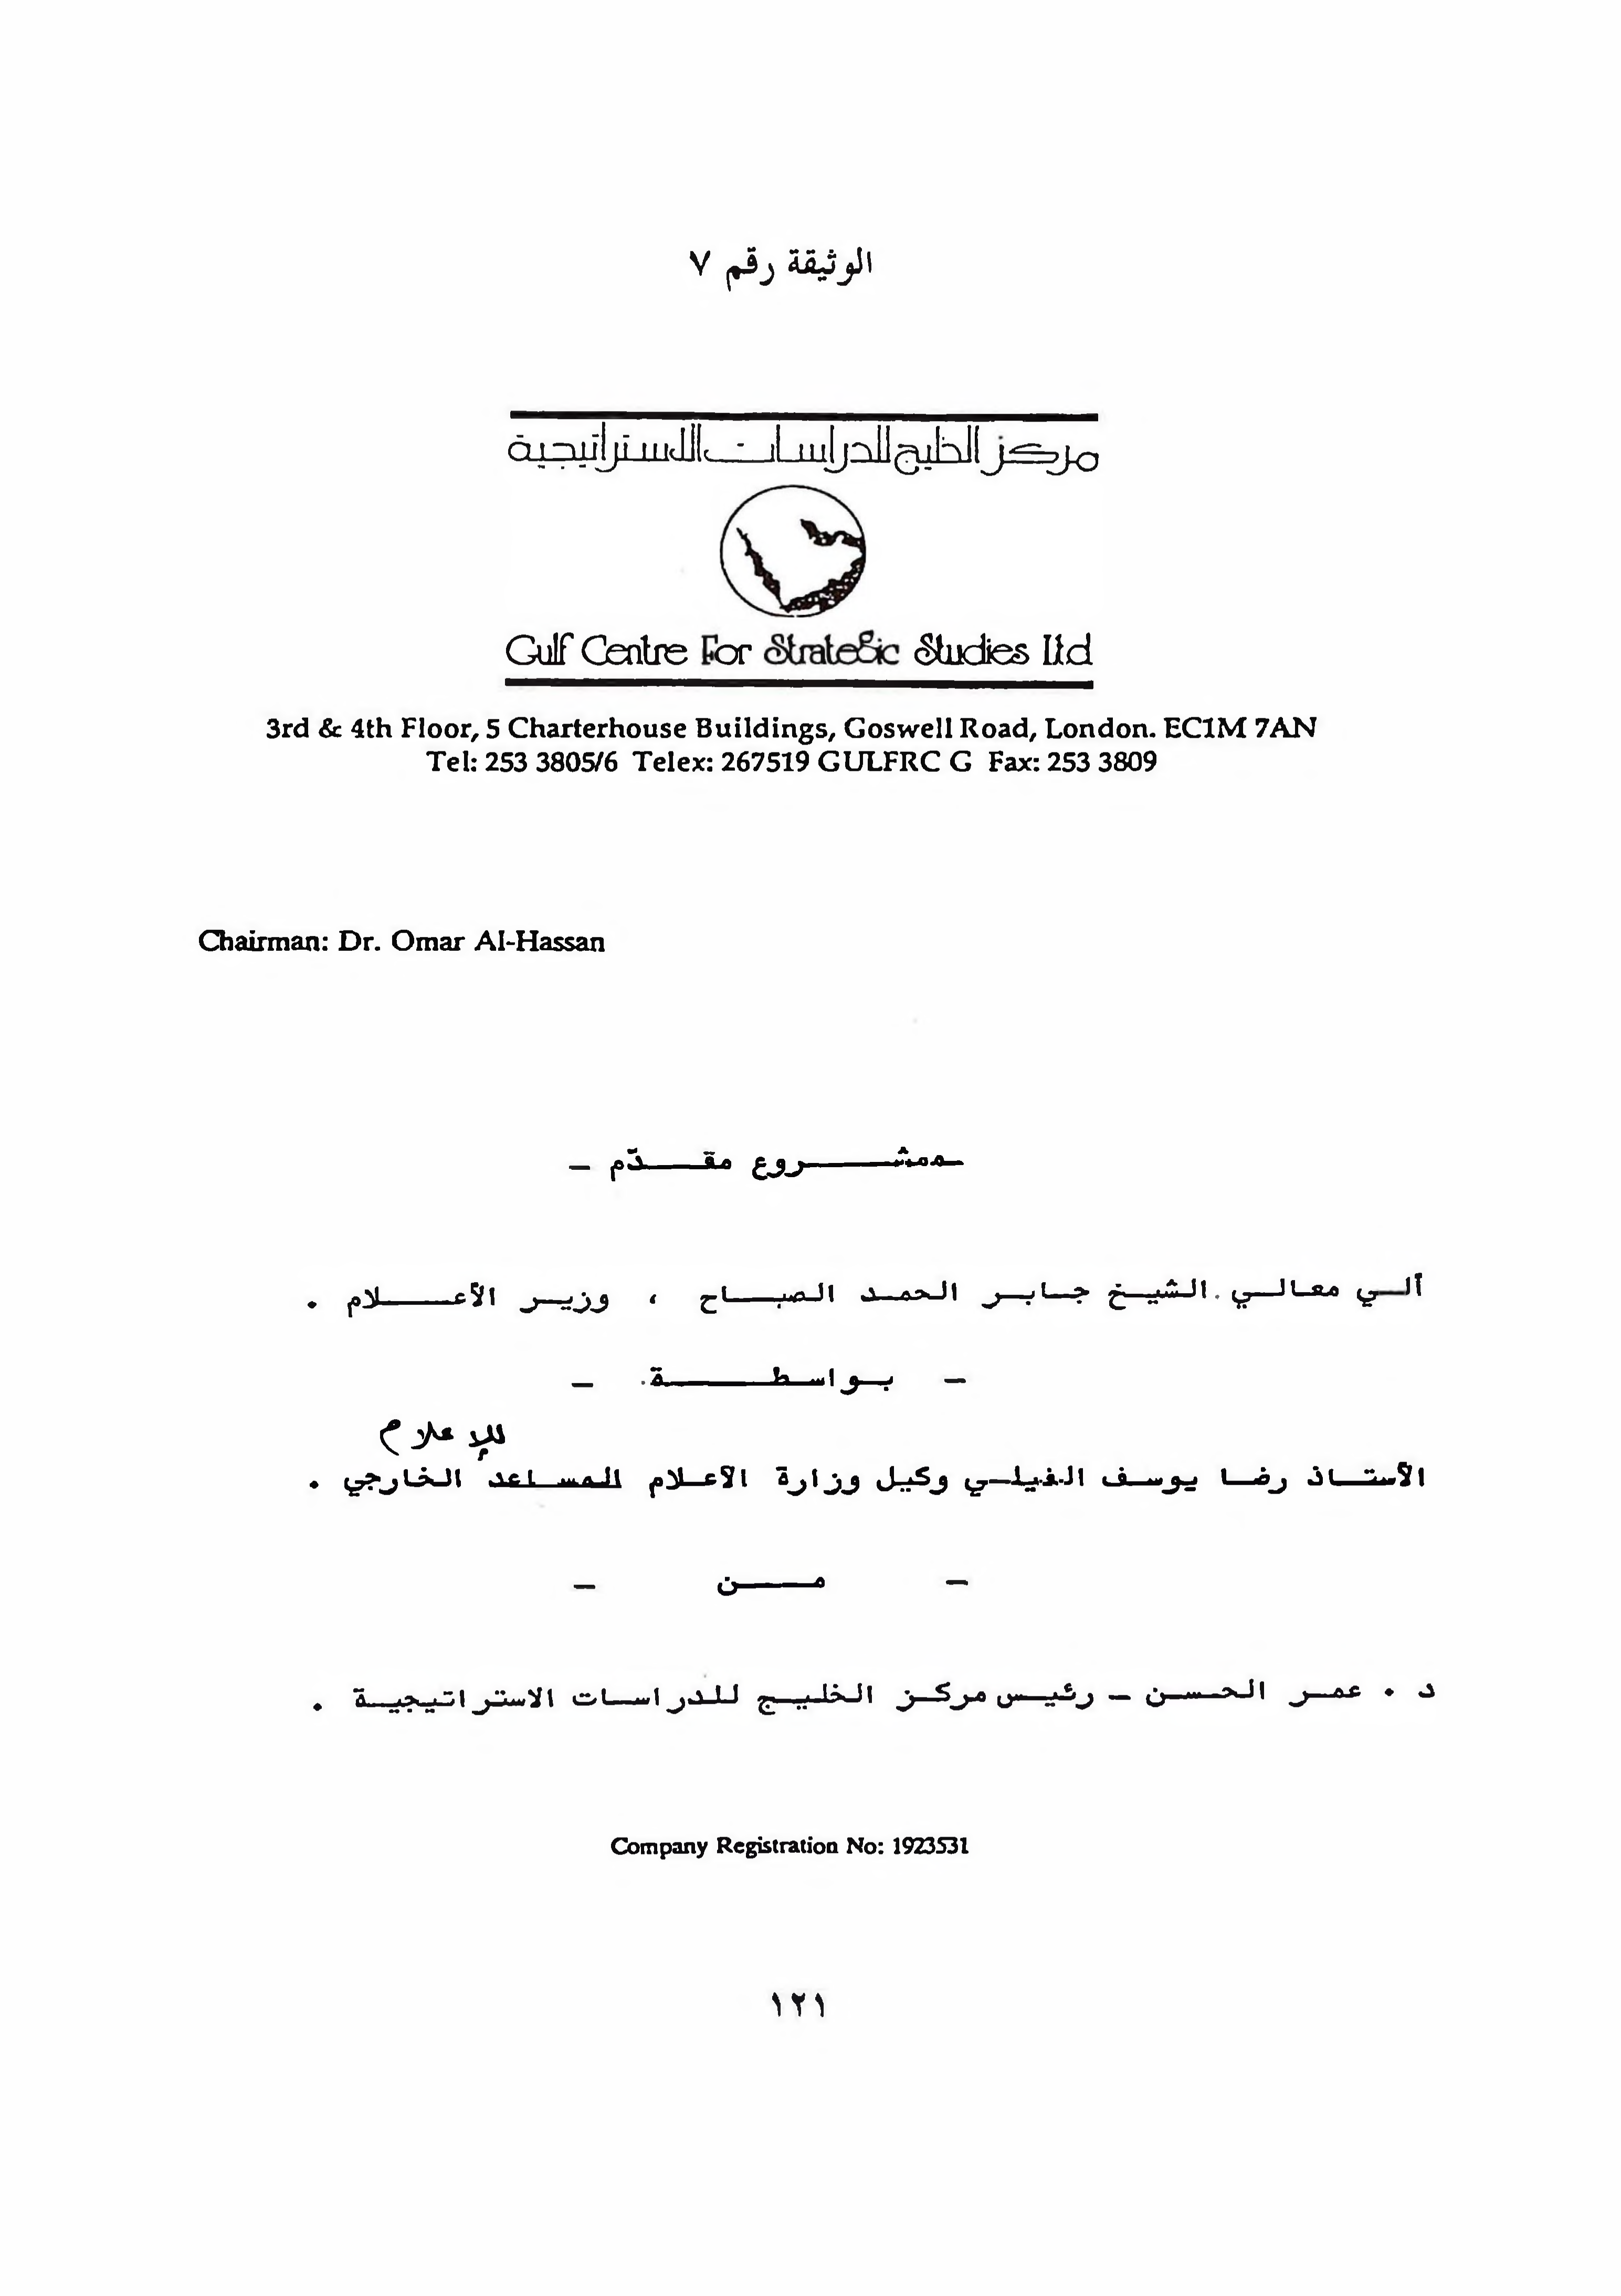 الوثيقة رقم ٧
مركز الخليج للدراسات الاستراتيجية
Gulf Centre For Strategic Studies Ltd
3rd & 4th Floor, 5 Charterhouse Buildings, Goswell Road, London. EC1M 7AN
Tel: 253 3805/6 Telex: 267519 GULFRC G Fax: 253 3809
Chairman: Dr. Omar Al-Hassan
مشروع مقدّم -
ألي معالي الشيخ جابر الحمد الصباح ، وزير الأعلام .
- بواسطة -
للإعلام
الأستاذ رضا يوسف الفيلي وكيل وزارة الأعلام المساعد الخارجي .
- من -
د . عمر الحسن - رئيس مركز الخليج للدراسات الاستراتيجية .
Company Registration No: 1923531
١٢١